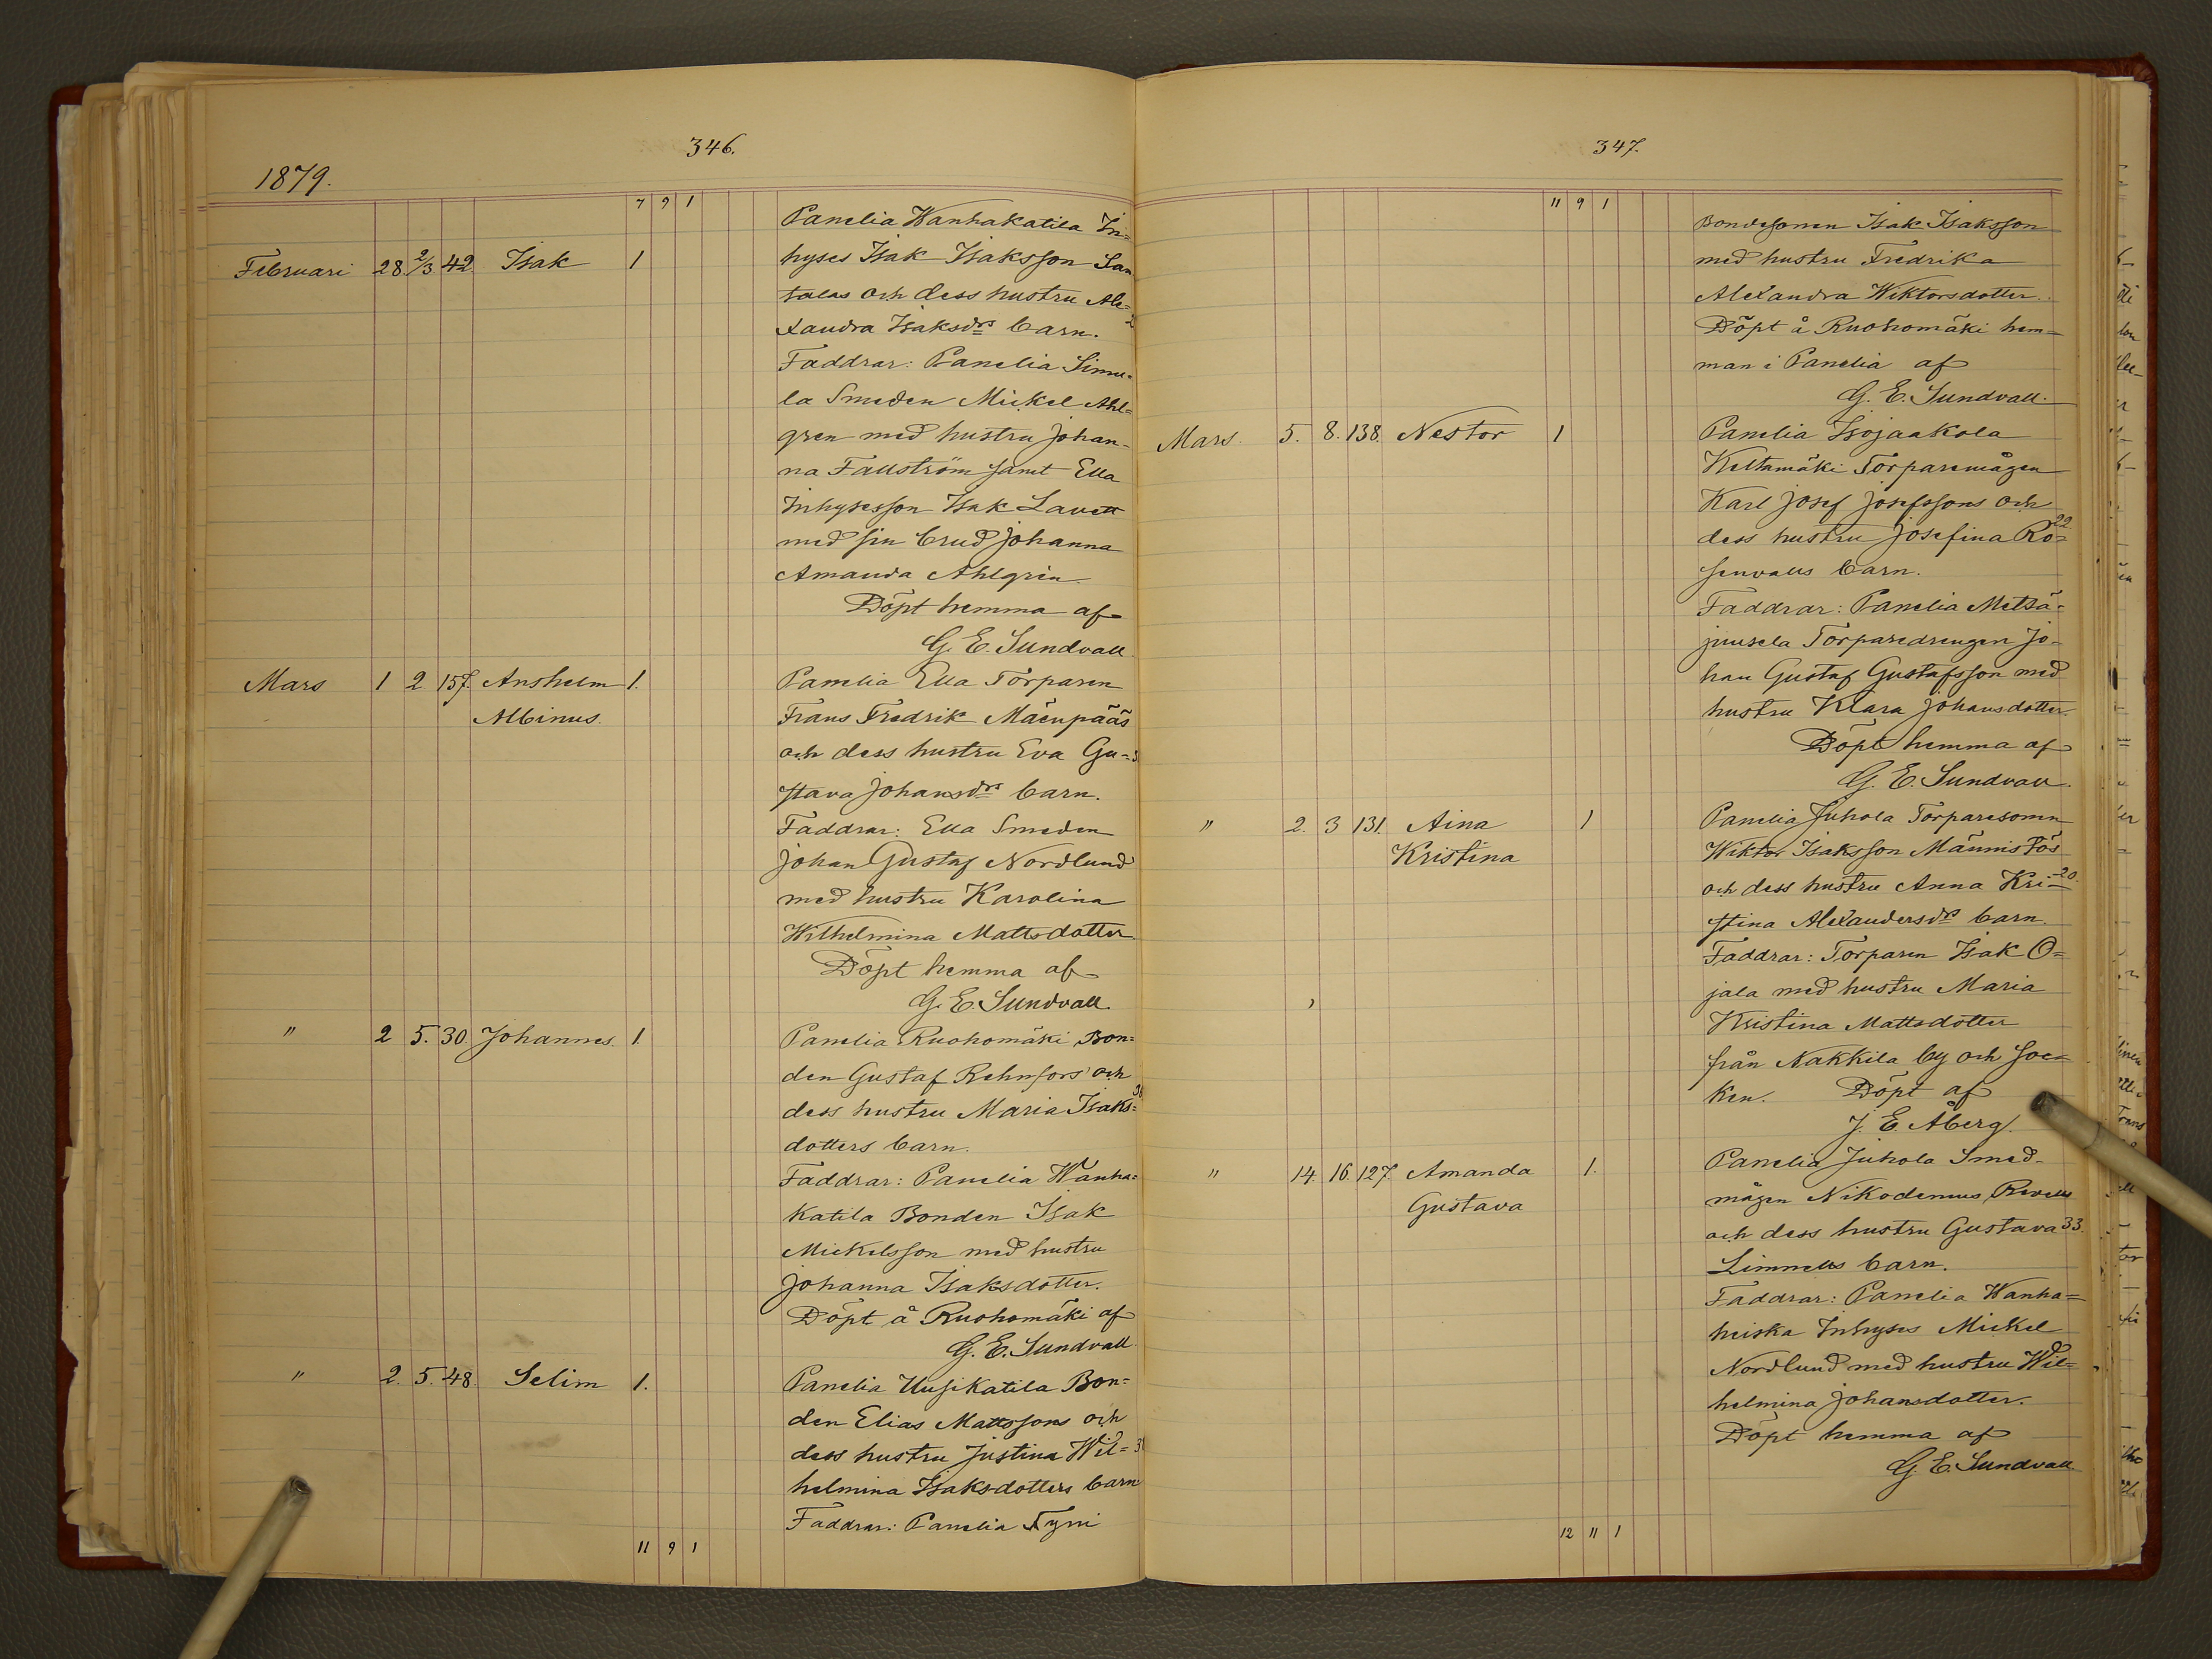 346.
1879.
7 9 1
Panelia Wanhakatila In=
Februari 28 2/3 42 Isak 1 hyses Isak Isaksson San
talas och dess hustru Ale=
xandra Isaksdrs barn.
Faddrar: Panelia Simu=
la Smeden Mickel Ahl=
gren med hustru Johan-
na Fallström samt Ella
Inhysesson Isak Lavett
med sin brud Johanna
Amanda Ahlgrén
Döpt hemma af
G. E. Sundvall
Mars 1 2 157. Anshelm 1. Panelia Ella Torparen
Albinus. Frans Fredrik Mäenpääs
och dess hustru Eva Gu=
stava Johansdrs barn.
Faddrar: Ella Smeden
Johan Gustaf Nordlund
med hustru Karolina
Wilhelmina Mattsdotter
Döpt hemma af
G. E. Sundvall.
" 2 5. 30. Johannes. 1. Panelia Ruohomäki Bon=
den Gustaf Rehnfors och
dess hustru Maria Isaks=
dotters barn.
Faddrar: Panelia Wanha=
katila Bonden Isak
Mickelsson med hustru
Johanna Isaksdotter.
Döpt å Ruohomäki af
G. E. Sundvall.
" 2. 5. 48. Selim 1. Panelia Uusikatila Bon=
den Elias Mattssons och
dess hustru Justina Wil=
helmina Isaksdotters barn
Faddrar: Panelia Tyni
11 9 1
347.
11 9 1
Bondesonen Isak Isaksson
med hustru Fredrika
Alexandra Wiktorsdotter.
Döpt å Ruohomäki hem=
man i Panelia af
G. E. Sundvall.
Mars. 5. 8. 138. Nestor 1 Panelia Isojaakola
Keltamäki Torparemågen
Karl Josef Josefssons och
dess hustru Josefina Ro= 22
senvalls barn.
Faddrar: Panelia Metsä=
juusela Torparedrengen Jo-
han Gustaf Gustafsson med
hustru Klara Johansdotter.
Döpt hemma af
G. E. Sundvall.
" 2. 3 131. Aina 1 Panelia Juhola Torparesonen
Kristina Wiktor Isaksson Männistös
och dess hustru Anna Kri= 20.
stina Alexandersdrs barn
Faddrar: Torparen Isak O=
jala med hustru Maria
Kristina Mattsdotter
från Nakkila by och soc=
ken. Döpt af
J. E. Åberg.
" 14. 16. 127. Amanda 1. Panelia Juhola Smed-
Gustava mågen Nikodemus Revells
och dess hustru Gustava 33.
Limnells barn.
Faddrar: Panelia Wanha=
heiska Inhyses Mickel
Nordlund med hustru Wil=
helmina Johansdotter.
Döpt hemma af
G. E. Sundvall.
12 11 1